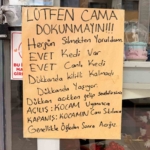 LÜTFEN CAMA
DOKUNMAYIN!!!
Hergün Silmekten Yoruldum
EVET Kedi Var
EVET Canlı Kedi
Dükkanda kilit Kalmadı
Dükkanda Yaşıyor
Dükkan açıkken gelip
AÇILIŞ: KOCAM Uyanınca
KAPANIŞ: KOCAMIN Canı Sıkılınca
Genellikle Öğleden Sonra